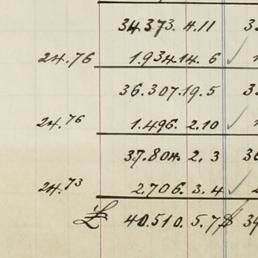 34.373. 4.11
24.76 1.934.14. 6 ✓
36.307.19.5
24.76 1.496. 2.10 ✓
37.804. 2. 3
24.73 2.706. 3. 4 ✓
£ 40.510. 5. 7